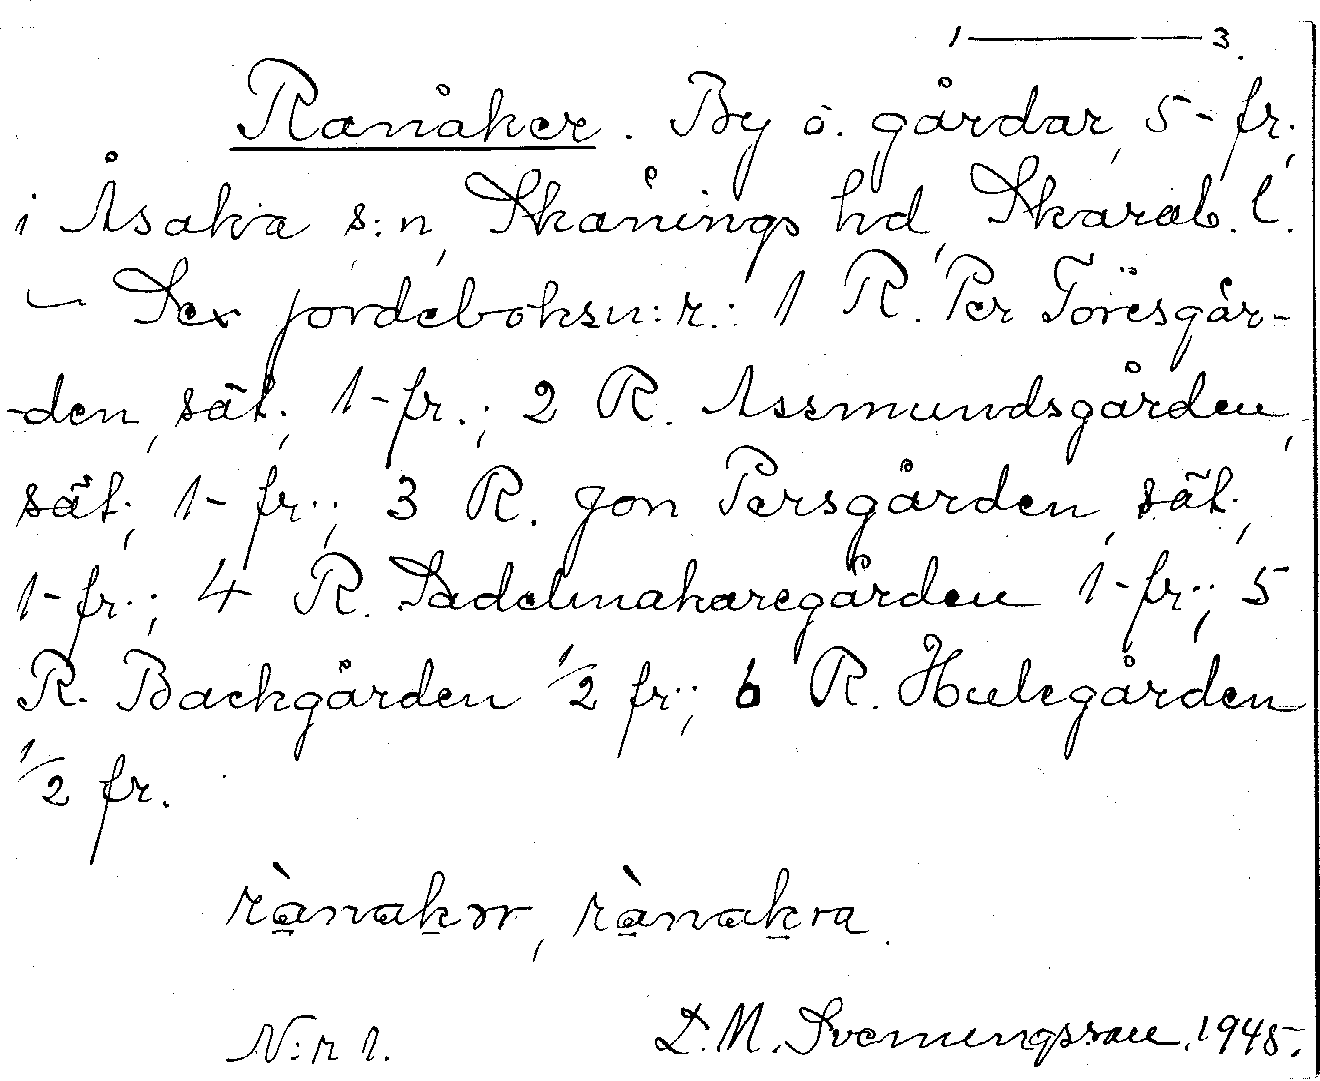 1 — 3.
Ranåker. By o. gårdar, 5-fr.,
i Åsaka s:n, Skånings hd, Skarab. l.
— Sex jordeboksn:r.: 1 R. Per Töresgår-
-den, sät., 1-fr.; 2 R. Assmundsgården,
sät., 1-fr.; 3 R. Jon Persgården, sät.,
1-fr.; 4 R. Sadelmakaregården 1-fr.; 5
R. Backgården 1/2 fr.; 6 R. Hulegården
1/2 fr.
rànakər, rànakra.
N:r 1.
D. M. Svenungsson. 1945.